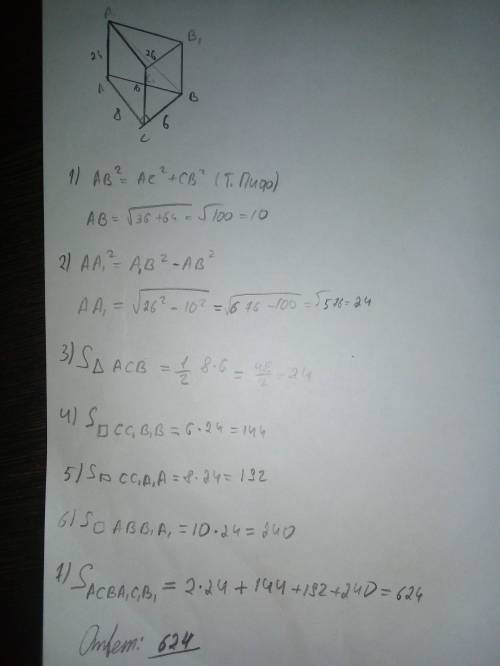 A₁
B₁
24
26
A
B
8
6
C
1) AB² = AC² + CB² (Т. Пиф)
AB = √36+64 = √100 = 10
2) AA₁² = A₁B² - AB²
AA₁ = √26² - 10² = √676 - 100 = √576 = 24
3) S△ ACB = 1/2 8·6 = 48/2 = 24
4) S□ CC₁B₁B = 6·24 = 144
5) S□ CC₁A₁A = 8·24 = 192
6) S□ ABB₁A₁ = 10·24 = 240
7) S ACBA₁C₁B₁ = 2·24 + 144 + 192 + 240 = 624
Ответ: 624